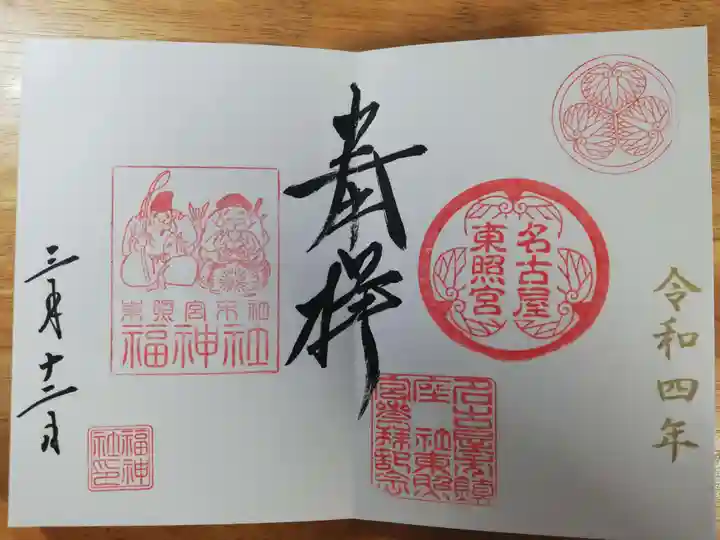 令和四年
名古屋
東照宮
名古屋東鎮
座 社東照
宮参拝記念
奉拝
東照宮末社
福神社
三月十二日
福神
社印